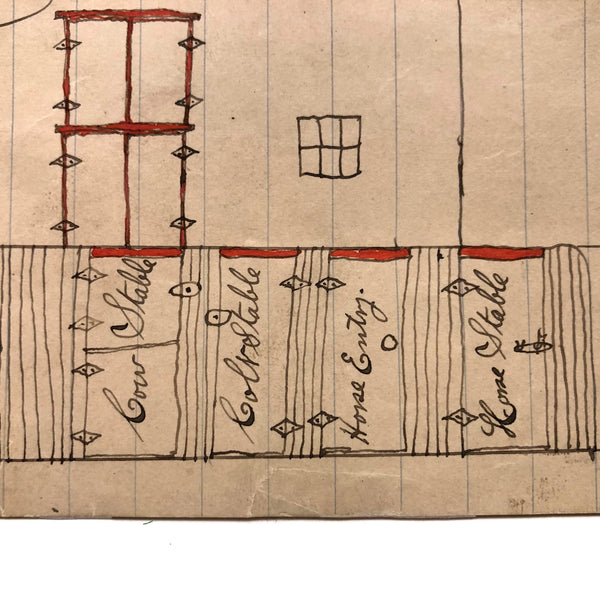 Cow Stable
Colt Stable
Horse Entry.
Horse Stable